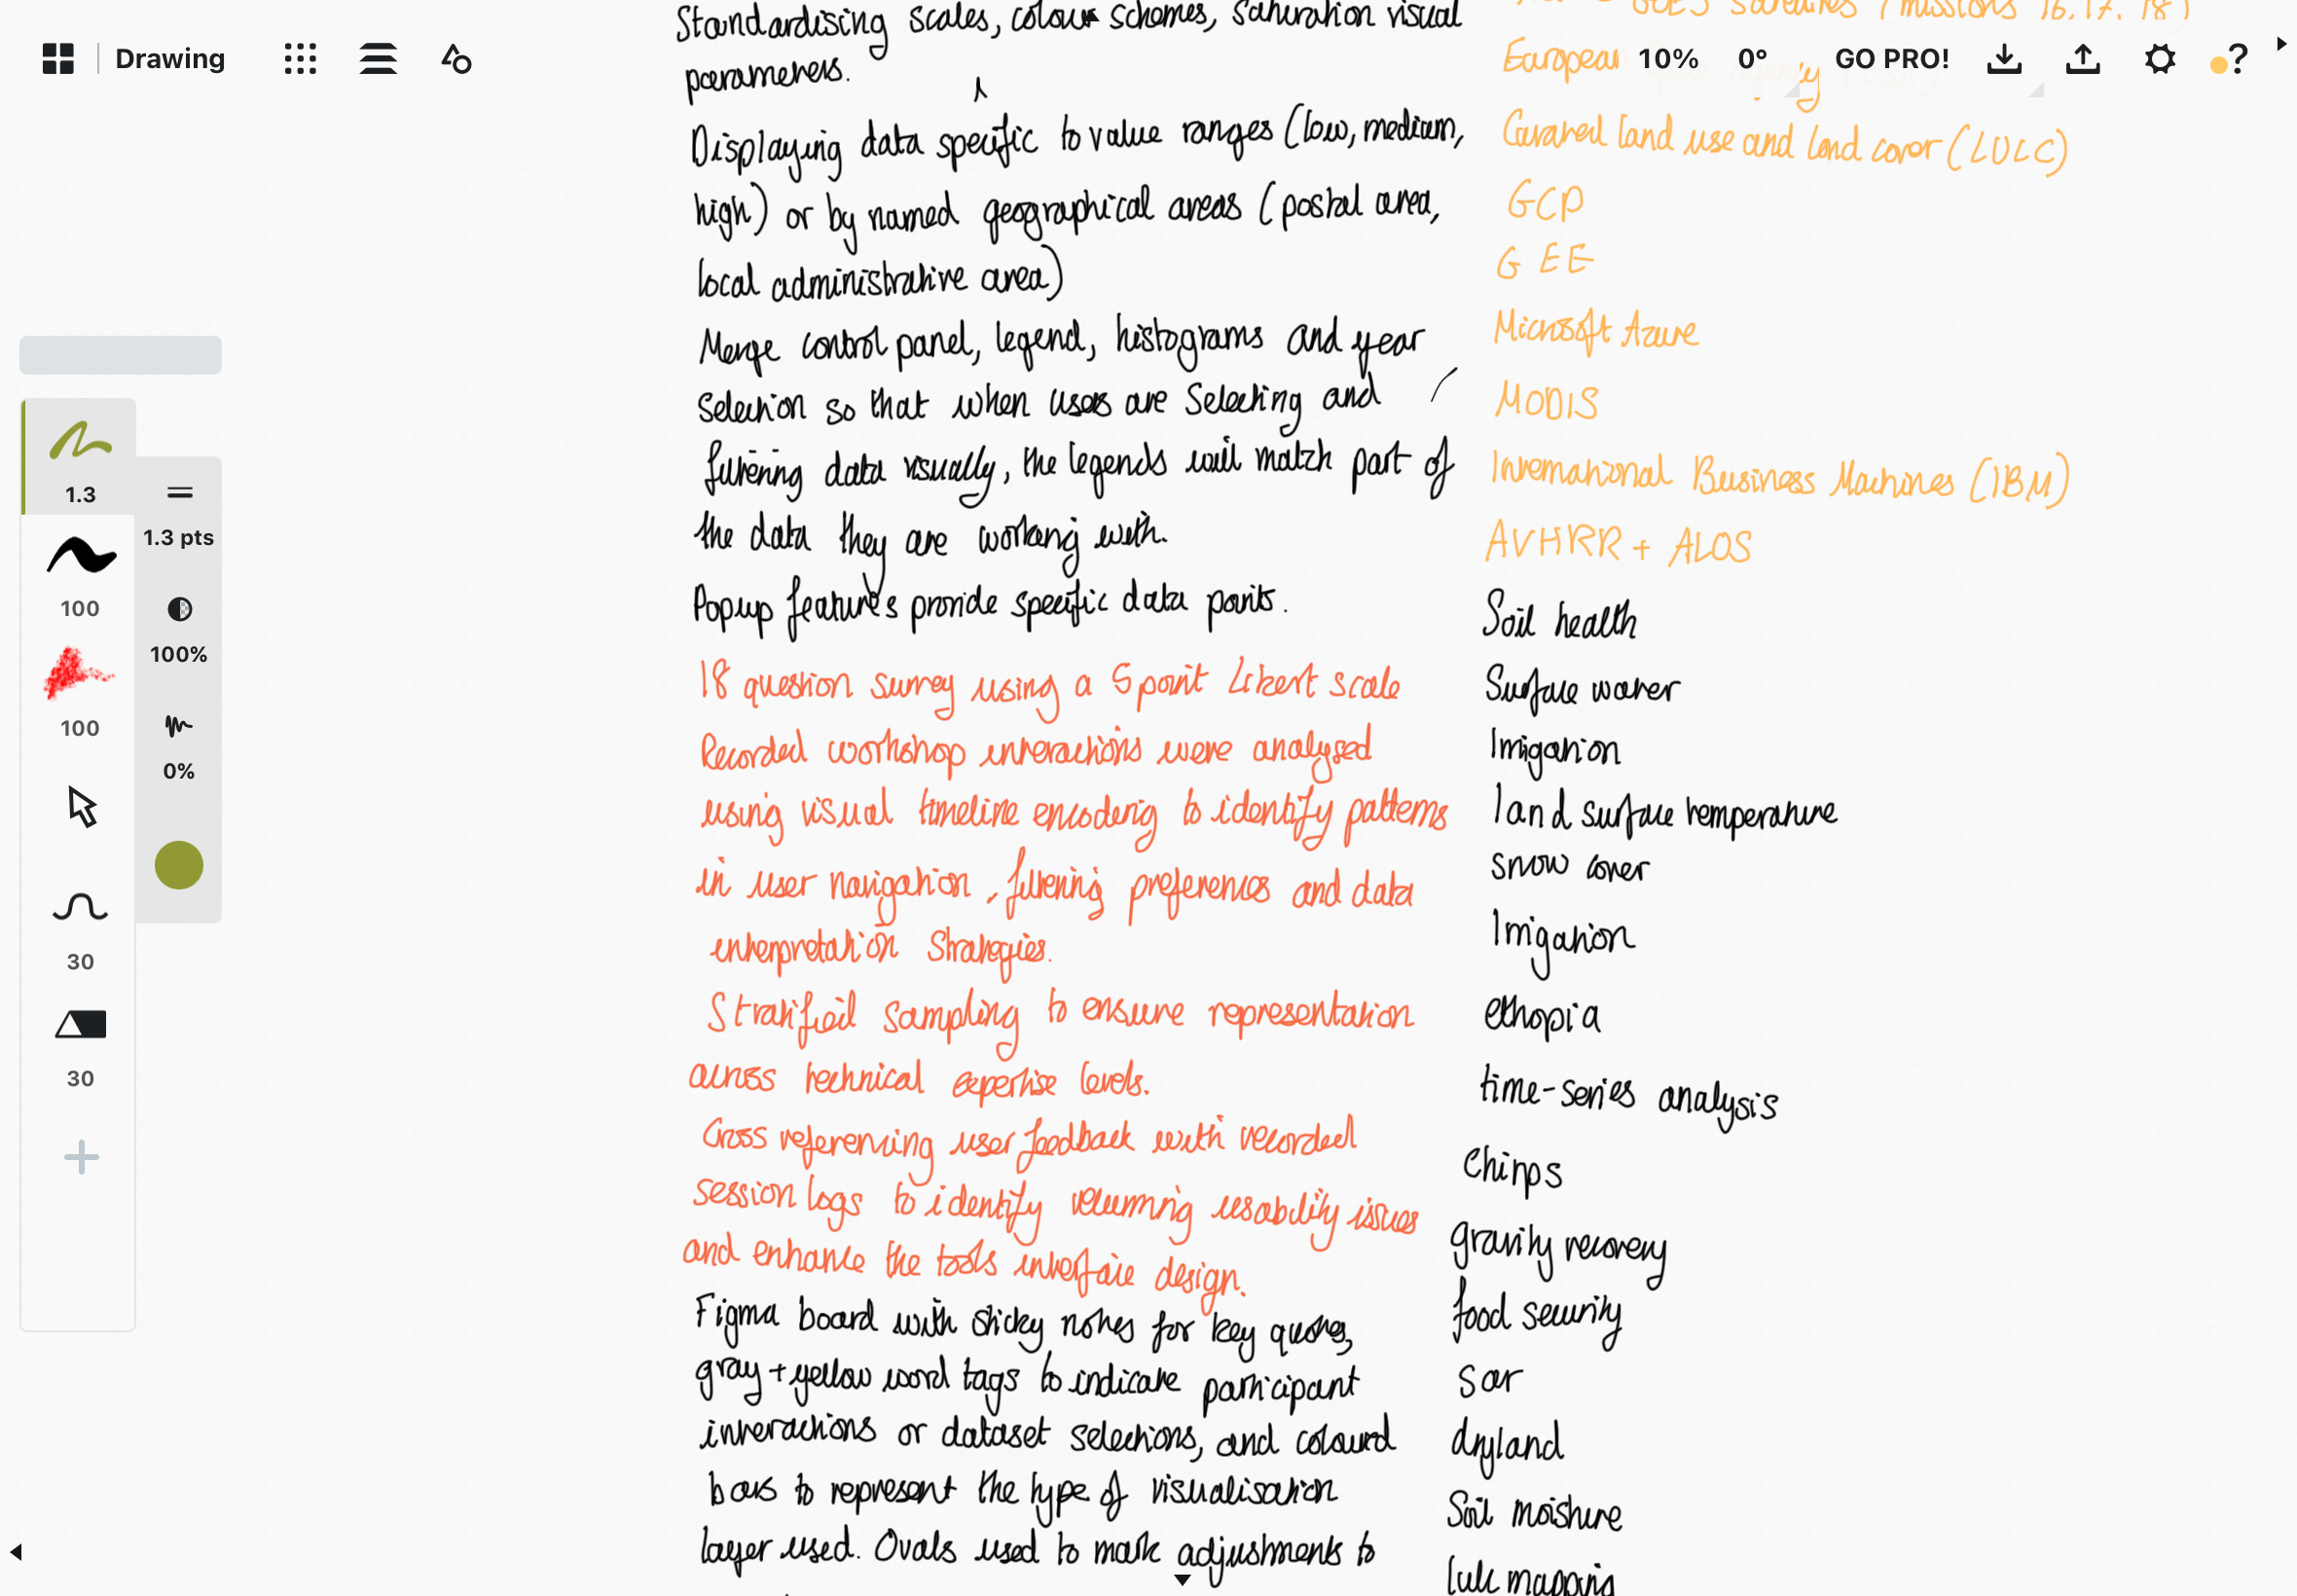 Drawing
10%
0°
GO PRO!
?
1.3
100
100
30
30
1.3 pts
100%
0%
Standardising scales, colour schemes, saturation visual
parameters.
Displaying data specific to value ranges (low, medium,
high) or by named geographical areas (postal area,
local administrative area)
Merge control panel, legend, histograms and year
selection so that when users are selecting and
filtering data visually, the legends will match part of
the data they are working with.
Popup features provide specific data points.
18 question survey using a 5 point Likert scale
Recorded workshop interactions were analysed
using visual timeline encoding to identify patterns
in user navigation, filtering preferences and data
interpretation strategies.
Stratified sampling to ensure representation
across technical expertise levels.
Cross referencing user feedback with recorded
session logs to identify recurring usability issues
and enhance the tools interface design.
Figma board with sticky notes for key quotes,
gray + yellow word tags to indicate participant
interactions or dataset selections, and coloured
bars to represent the type of visualisation
layer used. Ovals used to mark adjustments to
GOES satellites (missions 16, 17, 18)
European
land use and land cover (LULC)
GCP
GEE
Microsoft Azure
MODIS
International Business Machines (IBM)
AVHRR + ALOS
Soil health
Surface water
Irrigation
land surface temperature
snow cover
Irrigation
ethopia
time-series analysis
Chirps
gravity recovery
food security
sar
dryland
Soil moisture
lulc mapping